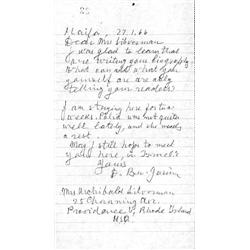 Haifa, 27.1.66
Dear Mrs Silverman
I was glad to learn that
are writing your biography.
What can add what you
yourself are ably
telling your readers
I am staying here for two
weeks. Paula was not quite
well lately, and she needs
a rest.
May I still hope to meet
you here, in Israel?
Yours
D. Ben-Gurion
Mrs Archibald Silverman
25 Channing Ave.
Providence V, Rhode Island
USA